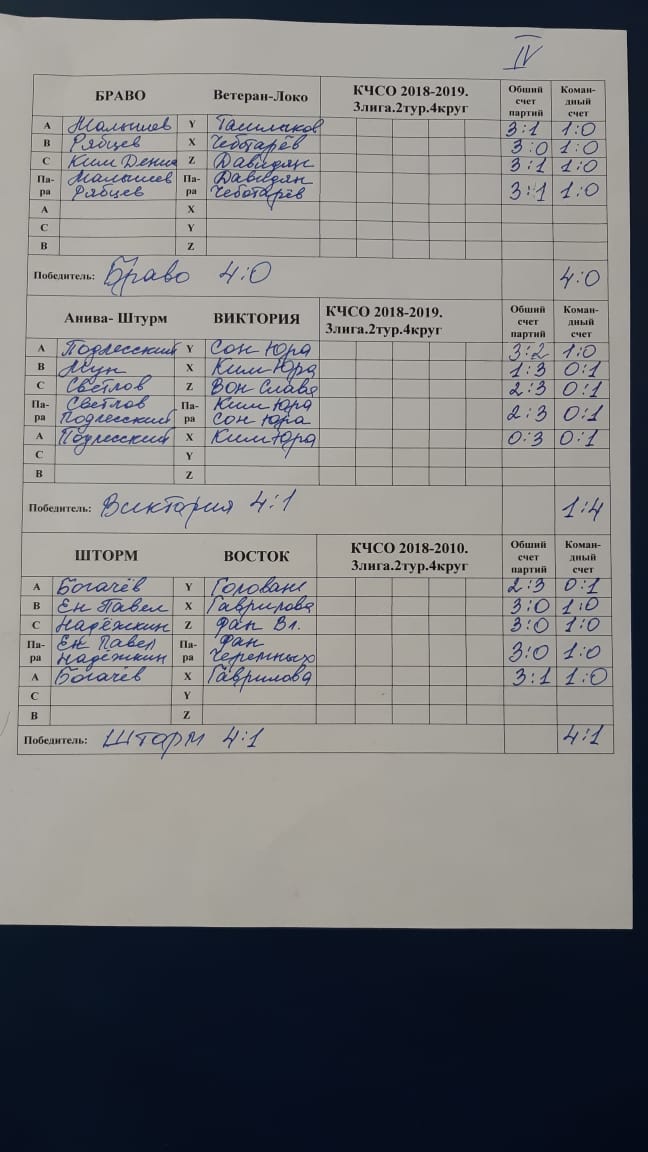 IV
БРАВО Ветеран-Локо КЧСО 2018-2019. 3лига.2тур.4круг Обший счет партий Коман-дный счет
А Малышев Y 3:1 1:0
В Рябцев X Чеботарёв 3:0 1:0
С Ким Денис Z Давидян 3:1 1:0
Па-ра Малышев Рябцев Па-ра Давидян Чеботарёв 3:1 1:0
А X
С Y
В Z
Победитель: Браво 4:0 4:0
Анива- Штурм ВИКТОРИЯ КЧСО 2018-2019. 3лига.2тур.4круг Обший счет партий Коман-дный счет
А Подлесский Y Сон Юра 3:2 1:0
В X Ким Юра 1:3 0:1
С Светлов Z Вон Слава 2:3 0:1
Па-ра Светлов Подлесский Па-ра Ким Юра Сон Юра 2:3 0:1
А Подлесский X Ким Юра 0:3 0:1
С Y
В Z
Победитель: Виктория 4:1 1:4
ШТОРМ ВОСТОК КЧСО 2018-2010. 3лига.2тур.4круг Обший счет партий Коман-дный счет
А Богачёв Y 2:3 0:1
В Ен Павел X Гаврилова 3:0 1:0
С Надёжкин Z Фан Вл. 3:0 1:0
Па-ра Ен Павел Надёжкин Па-ра Фан Черемных 3:0 1:0
А Богачёв X Гаврилова 3:1 1:0
С Y
В Z
Победитель: Шторм 4:1 4:1